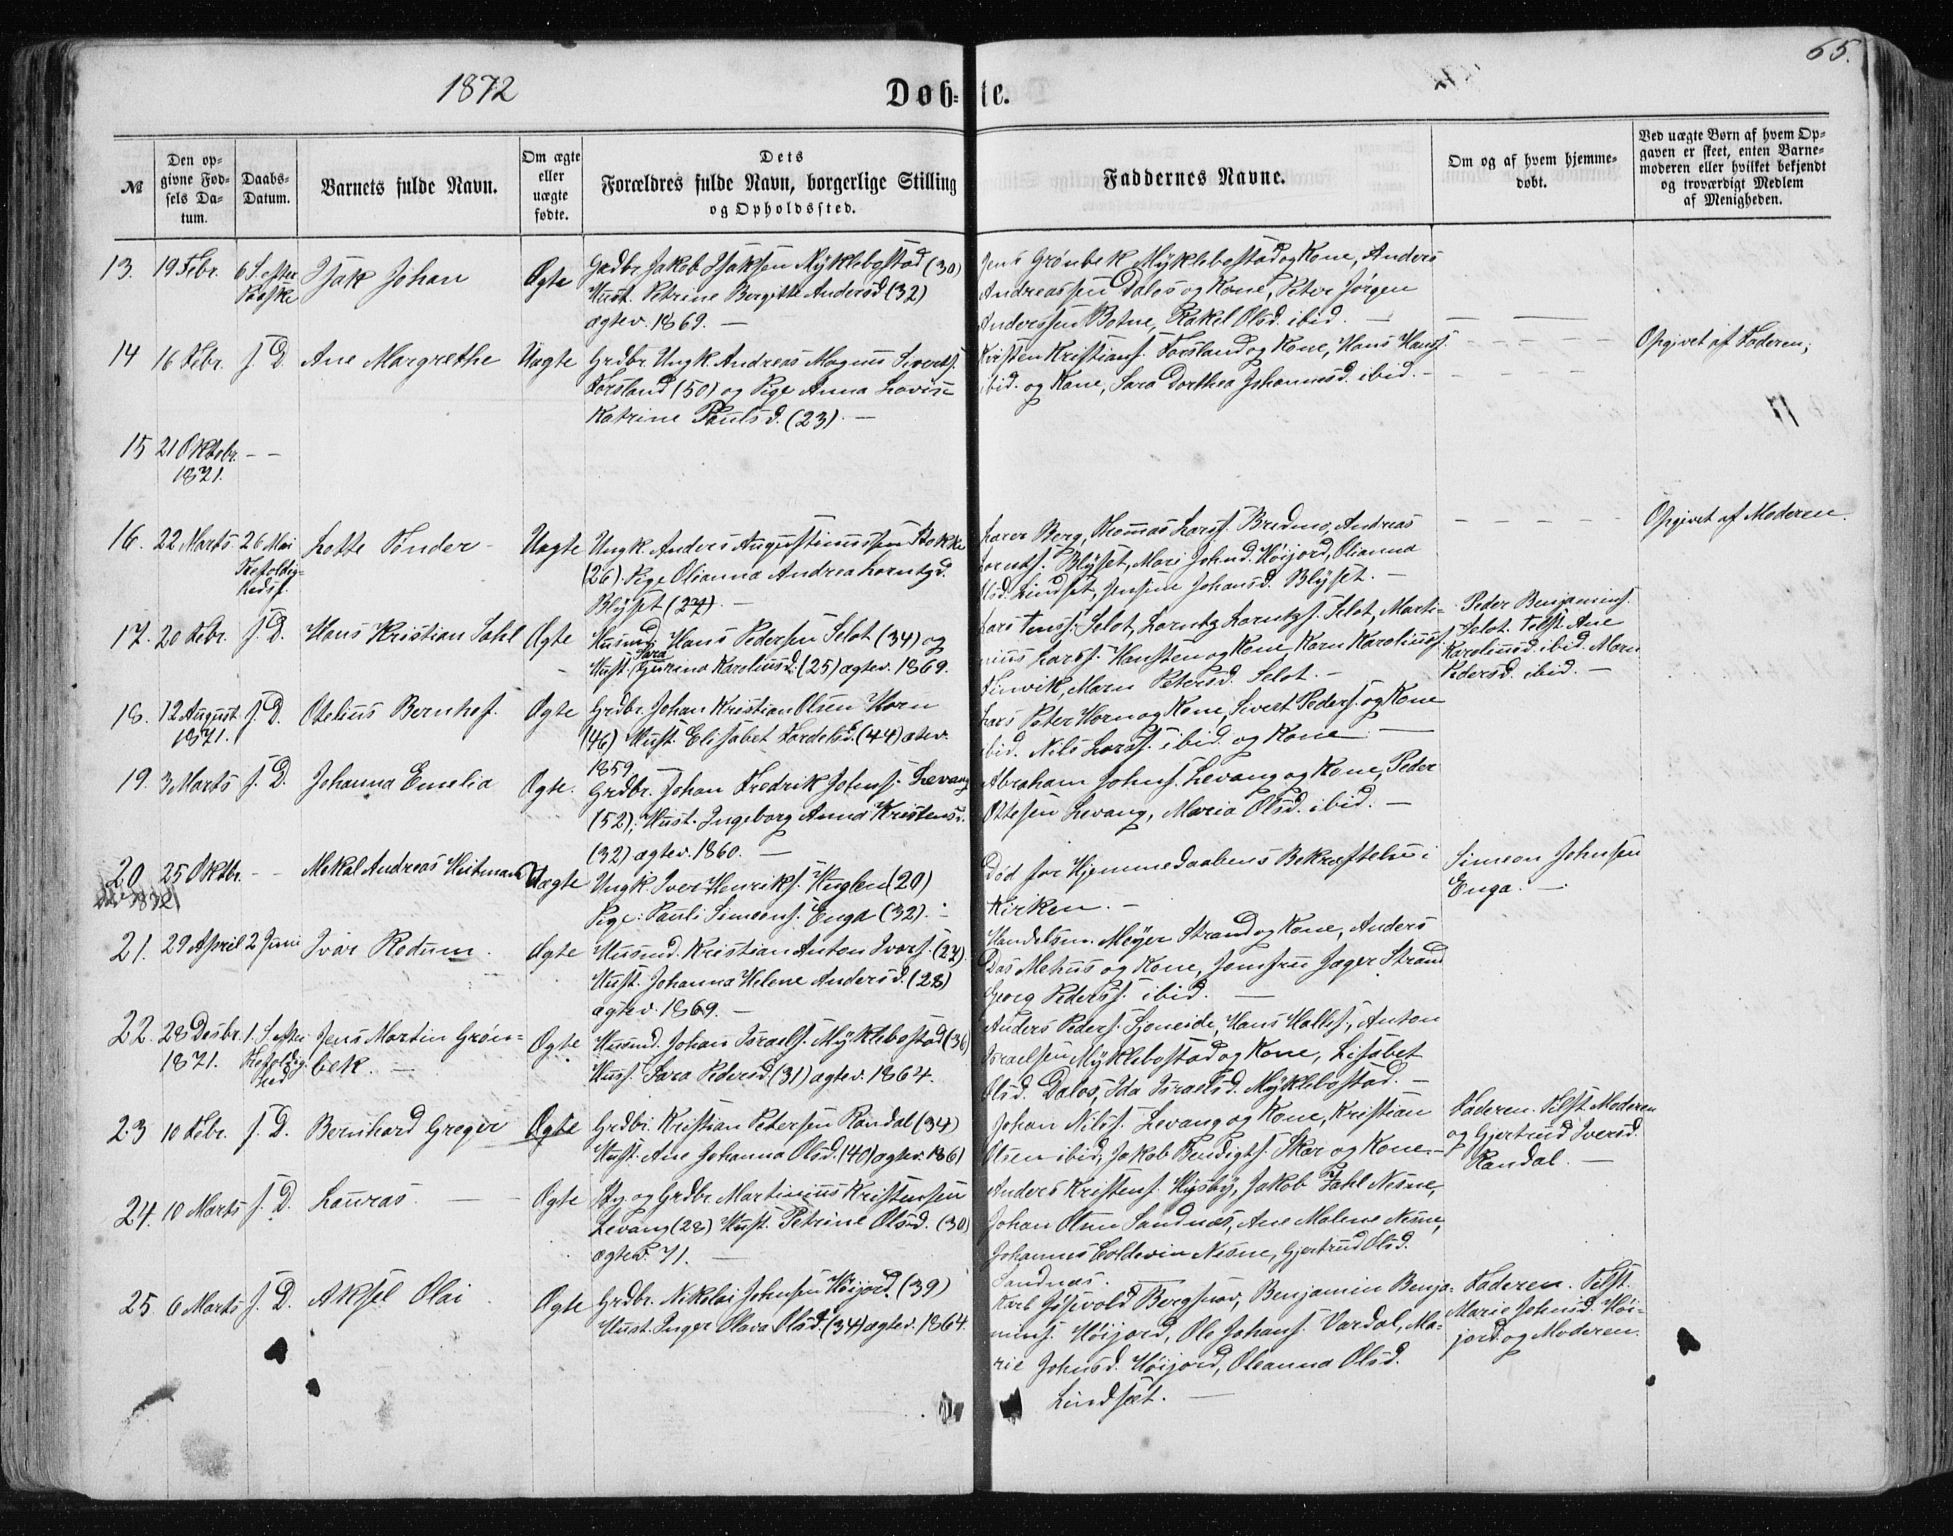 1872
Døb-te.
65.
№
Den op-
givne Fød-
sels Da-
tum.
Daabs-
Datum.
Barnets fulde Navn.
Om ægte
eller
uægte
fødte.
Dets
Forældres fulde Navn, borgerlige Stilling
og Opholdssted.
Faddernes Navne.
Om og af hvem hjemme-
døbt.
Ved uægte Børn af hvem Op-
gaven er skeet, enten Barne-
moderen eller hvilket bekjendt
og troværdigt Medlem
af Menigheden.
13. 19 Febr. 6 S. efter Paaske
Isak Johan
Ægte
Grdbr. Jakob Isaksen Myklebostad (30)
Hust. Petrine Bergitte Andersd. (32)
ægtev. 1869. —
Jens Grønbek Myklebostad og Kone, Anders
Andreassen Dalos og Kone, Peter Jørgen
Anderssen Botne, Rakel Olsd. ibid. —
14 16 Febr. s. D.
Ane Margrethe
Uægte
Grdbr. Ungk. Andreas Magnus Sivertss.
Forsland (50) og Pige Anna Lovise
Katrine Paulsd. (23). —
Kristen Kristians. Forsland og Kone, Hans Hanss.
ibid. og Kone, Sara Dorthea Johannesd. ibid. —
Opgivet af Faderen;
15 21 Oktobr. — —
1871.
16. 22 Marts 26 Mai
Trefoldig-
hedsf.
Lotte Tønder —
Uægte
Ungk. Anders Augustinussen Stokke
(26). Pige Olianna Andrea Lorntzd.
Blyset (27). —
Larer Berg, Thomas Larss. Bredmo, Andreas
Lorntss. Blyset, Mari Johnd. Høijord, Olianna
Olsd. Lindset, Jensine Johansd. Blyset. —
Opgivet af Moderen.
17. 20 Febr. s. D.
Hans Kristian Dahl
Ægte
Husmd. Hans Pedersen Selot (34) og
Hust. Sara Gurina Karoliusd. (25) ægtev. 1869.
Lars Jenss. Selot, Lorntz Lorntzs. Selot, Marti-
nius Larss. Hansten og Kone, Karn Karoliuss.
Finvik, Marn Petersd. Selot. —
Peder Benjamins.
Selot. Tilst. Ane
Karoliusd. ibid. Marn
Pedersd. ibid. —
18. 12 August s. D.
1871.
Otelius Bernhof.
Ægte
Grdbr. Johan Kristian Olsen Horn
(46) Hust. Elisabet Tordelsd. (44) ægtev.
1859. —
Lars Peter Horn og Kone, Sivert Peders. og Kone
ibid. Nils Larss. ibid. og Kone —
19. 3 Marts s. D.
Johanna Emelia
Ægte.
Grdbr. Johan Fredrik Johns. Levang
(52); Hust. Ingeborg Anna Kristensd.
(32) ægtev. 1860. —
Abraham Johns. Levang og Kone, Peder
Ottesen Levang, Maria Olsd. ibid. —
20 25 Oktbr. — —
1871
Mekal Andreas Heitmann
Uægte
Ungk. Iver Henriks. Huglen (20)
Pige: Pauli Simeons. Enga (32). —
Død før Hjemmedaabens Bekræftelse i
Kirken. —
Simeon Johnsen
Enga. —
21. 29 April 2 Juni
Ivar Rodum.
Ægte
Husmd. Kristian Anton Ivars. (27)
Hust. Johanna Helene Andersd. (28)
ægtev. 1869. —
Handelsm. Meyer Strand og Kone, Anders
Das Mehus og Kone, Jomfru Jæger Strand
Georg Pederss. ibid. —
22. 28 Desbr. 1. S. efter
1871. Trefoldig-
hed
Jens Martin Grøn-
bek. —
Ægte
Husmd. Johan Israels. Myklebostad (36)
Hust. Sara Pedersd. (31) ægtev. 1864.
Anders Peders. Sjoneide, Hans Halles., Anton
Israelsen Myklebostad og Kone, Lisabet
Olsd. Dalos, Ida Israelsd. Myklebostad. —
23 10 Febr. s. D.
Bernhard Greger
Ægte
Grdbr. Kristian Petersen Randal (34)
Hust. Ane Johanna Olsd. (40) ægtev. 1861
Johan Nilss. Levang og Kone, Kristian
Olsen ibid, Jakob Bendigts. Skar og Kone. —
Faderen. Tilst. Moderen
og Gjertrud Iversd.
Randal. —
24. 10 Marts s. D.
Lauras. —
Ægte
Sty. og Grdbr. Martinius Kristensen
Levang (28) Hust. Petrine Olsd. (30)
ægtev. 71. —
Anders Kristens. Hysby, Jakob Zahl Nesne,
Johan Olsen Sandnæs, Ane Malene Nesne,
Johannes Coldevin Nesne, Gjertrud Olsd.
Sandnæs.
25. 6 Marts s. D.
Aksel Olai
Ægte
Grdbr. Nikolai Johnsen Høijord. (39)
Hust. Inger Olava Olsd. (34) ægtev. 1864.
Karl Josevold Bergsnov, Benjamin Benja-
mins. Høijord, Ole Johans. Vardal, Ma-
rie Johnsd. Høijord, Oleanna Olsd.
Lindset. —
Faderen. Tilst.
Marie Johnsd. Høi-
jord og Moderen.